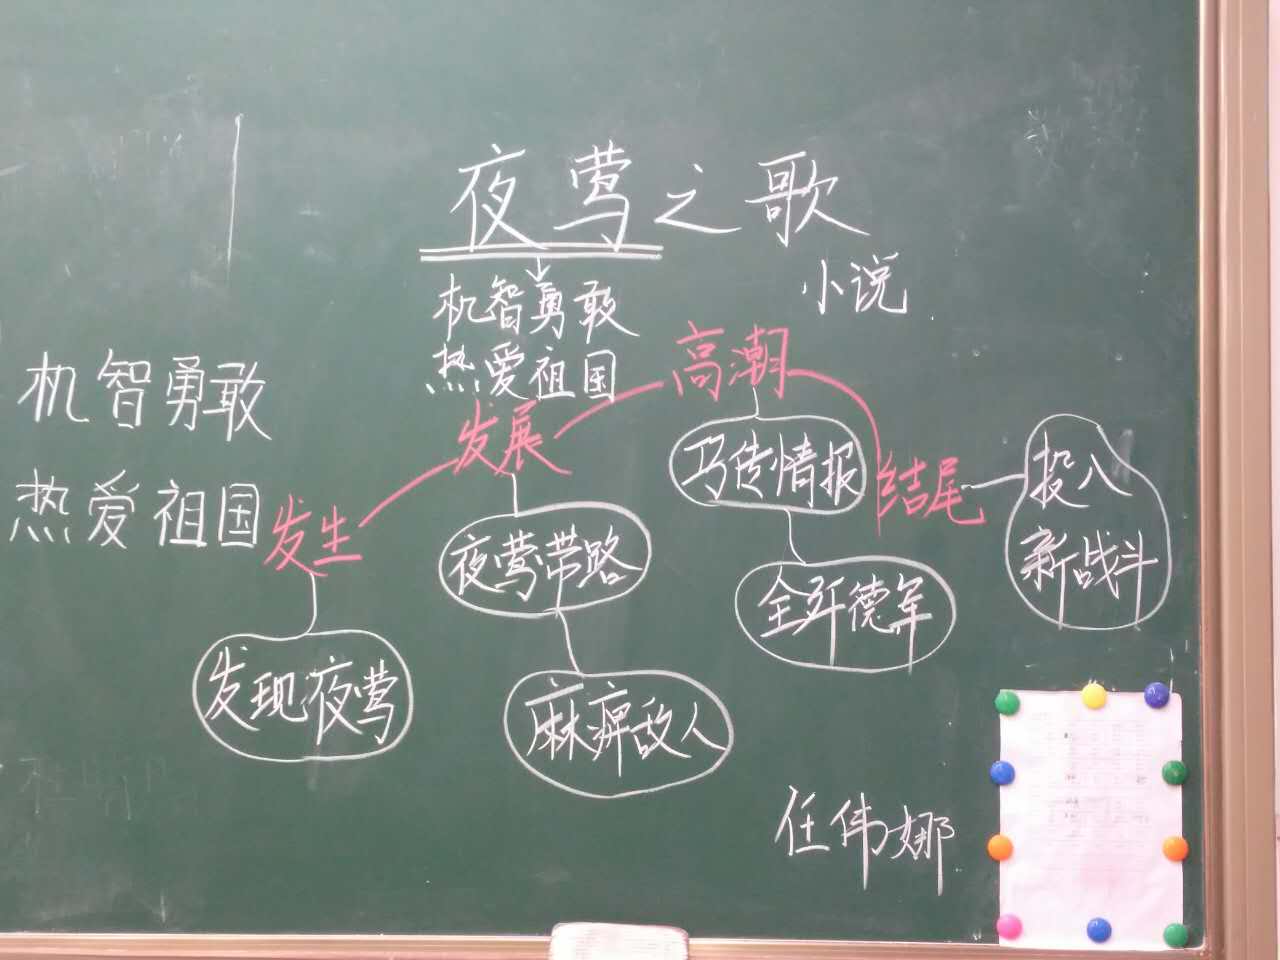 夜莺之歌
小说
机智勇敢
热爱祖国
机智勇敢
热爱祖国
发生
发展
高潮
结尾
发现夜莺
夜莺带路
麻痹敌人
巧传情报
全歼德军
投入
新战斗
任伟娜